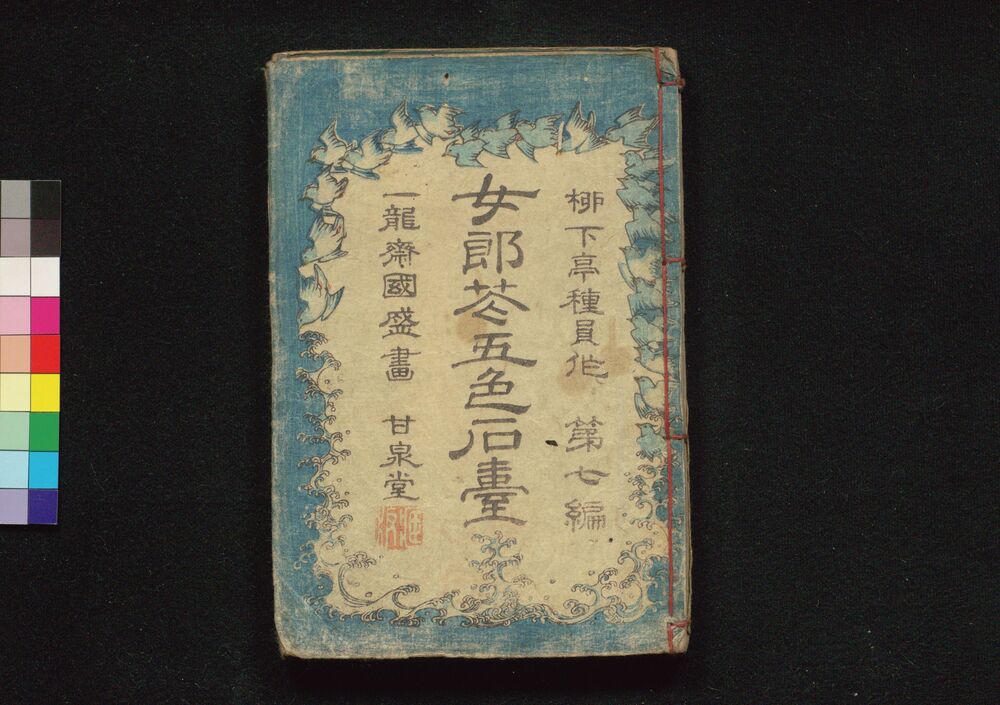 柳下亭種員作 第七編
女郎花五色石臺
一龍齋國盛畫 甘泉堂